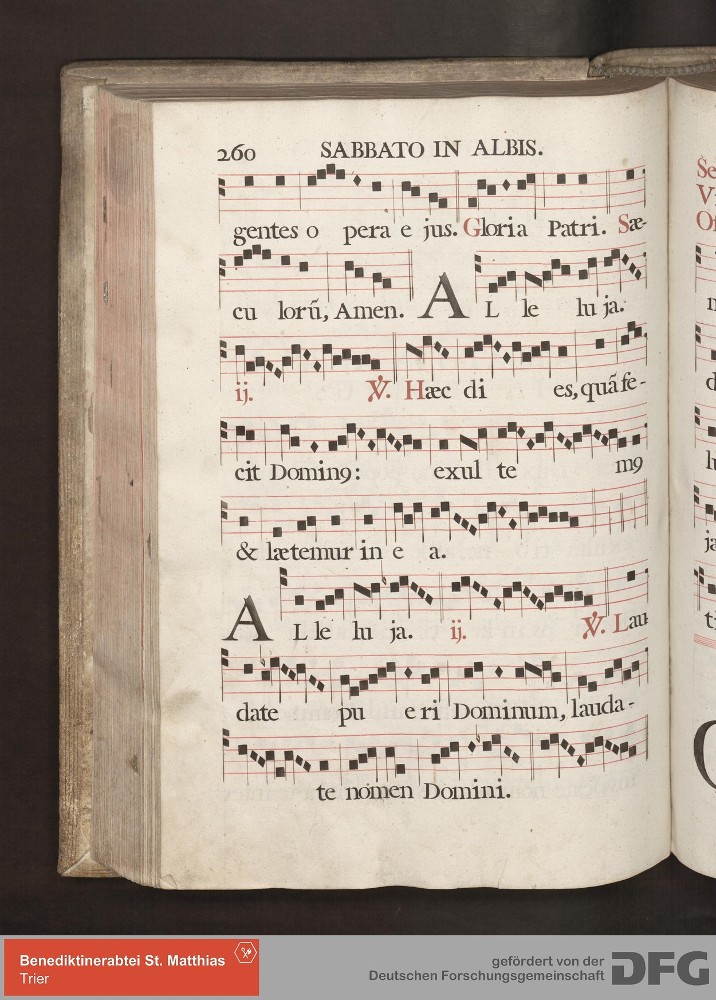 260 SABBATO IN ALBIS.
gentes o pera e jus. Gloria Patri. Sæ-
cu lorũ, Amen. A L le lu ja.
ij. ℣. Hæc di es, quã fe-
cit Dominꝰ: exul te mꝰ
& lætemur in e a.
A L le lu ja. ij. ℣. Lau
date pu e ri Dominum, lauda-
te nomen Domini.
Se
V
O
n
d
lu
ja
ti
Benediktinerabtei St. Matthias
Trier
gefördert von der
Deutschen Forschungsgemeinschaft DFG